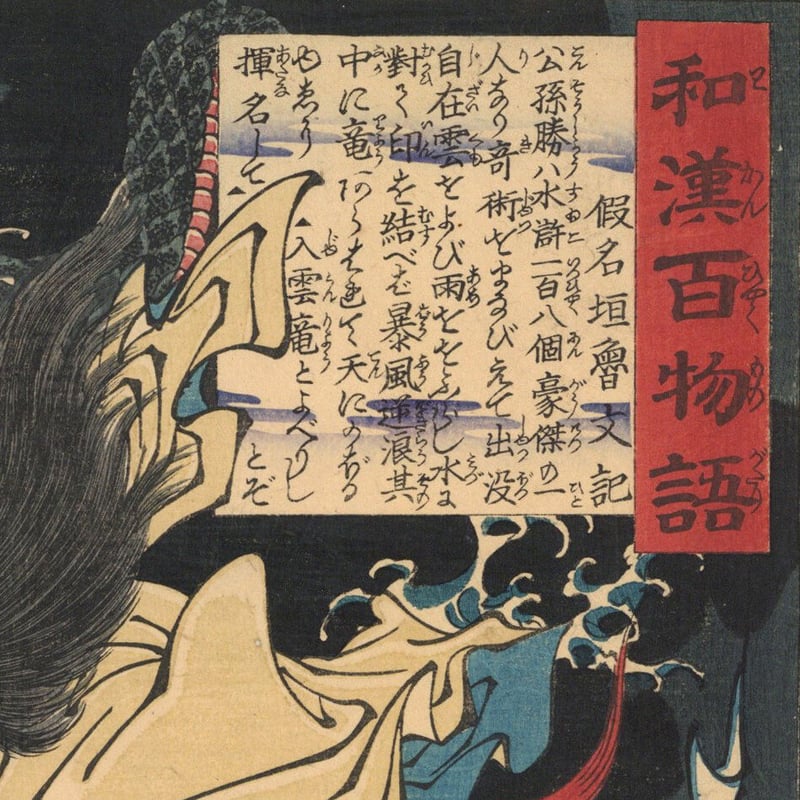 和漢百物語
假名垣魯文記
公孫勝ハ水滸一百八個豪傑の一
人なり奇術をまなびえて出没
自在雲をよび雨を水に
對て印を結べば暴風逆浪其
中に竜あらはれて天にのぼる
ゆゑ
揮名して
入雲竜とよべりし
とぞ